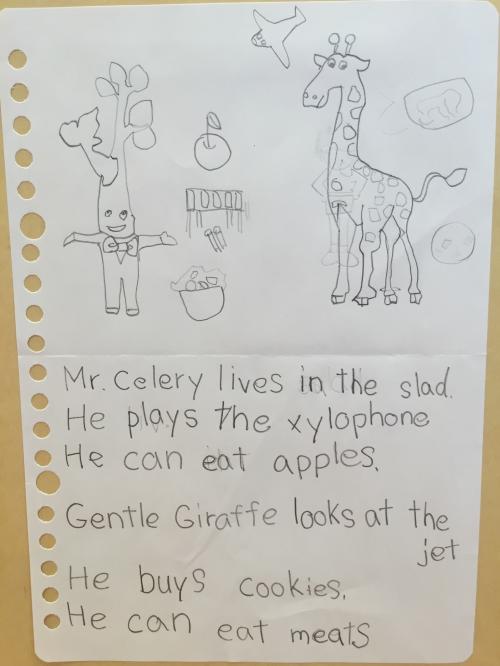 Mr. Celery lives in the slad.
He plays the xylophone
He can eat apples.
Gentle Giraffe looks at the
jet
He buys cookies.
He can eat meats